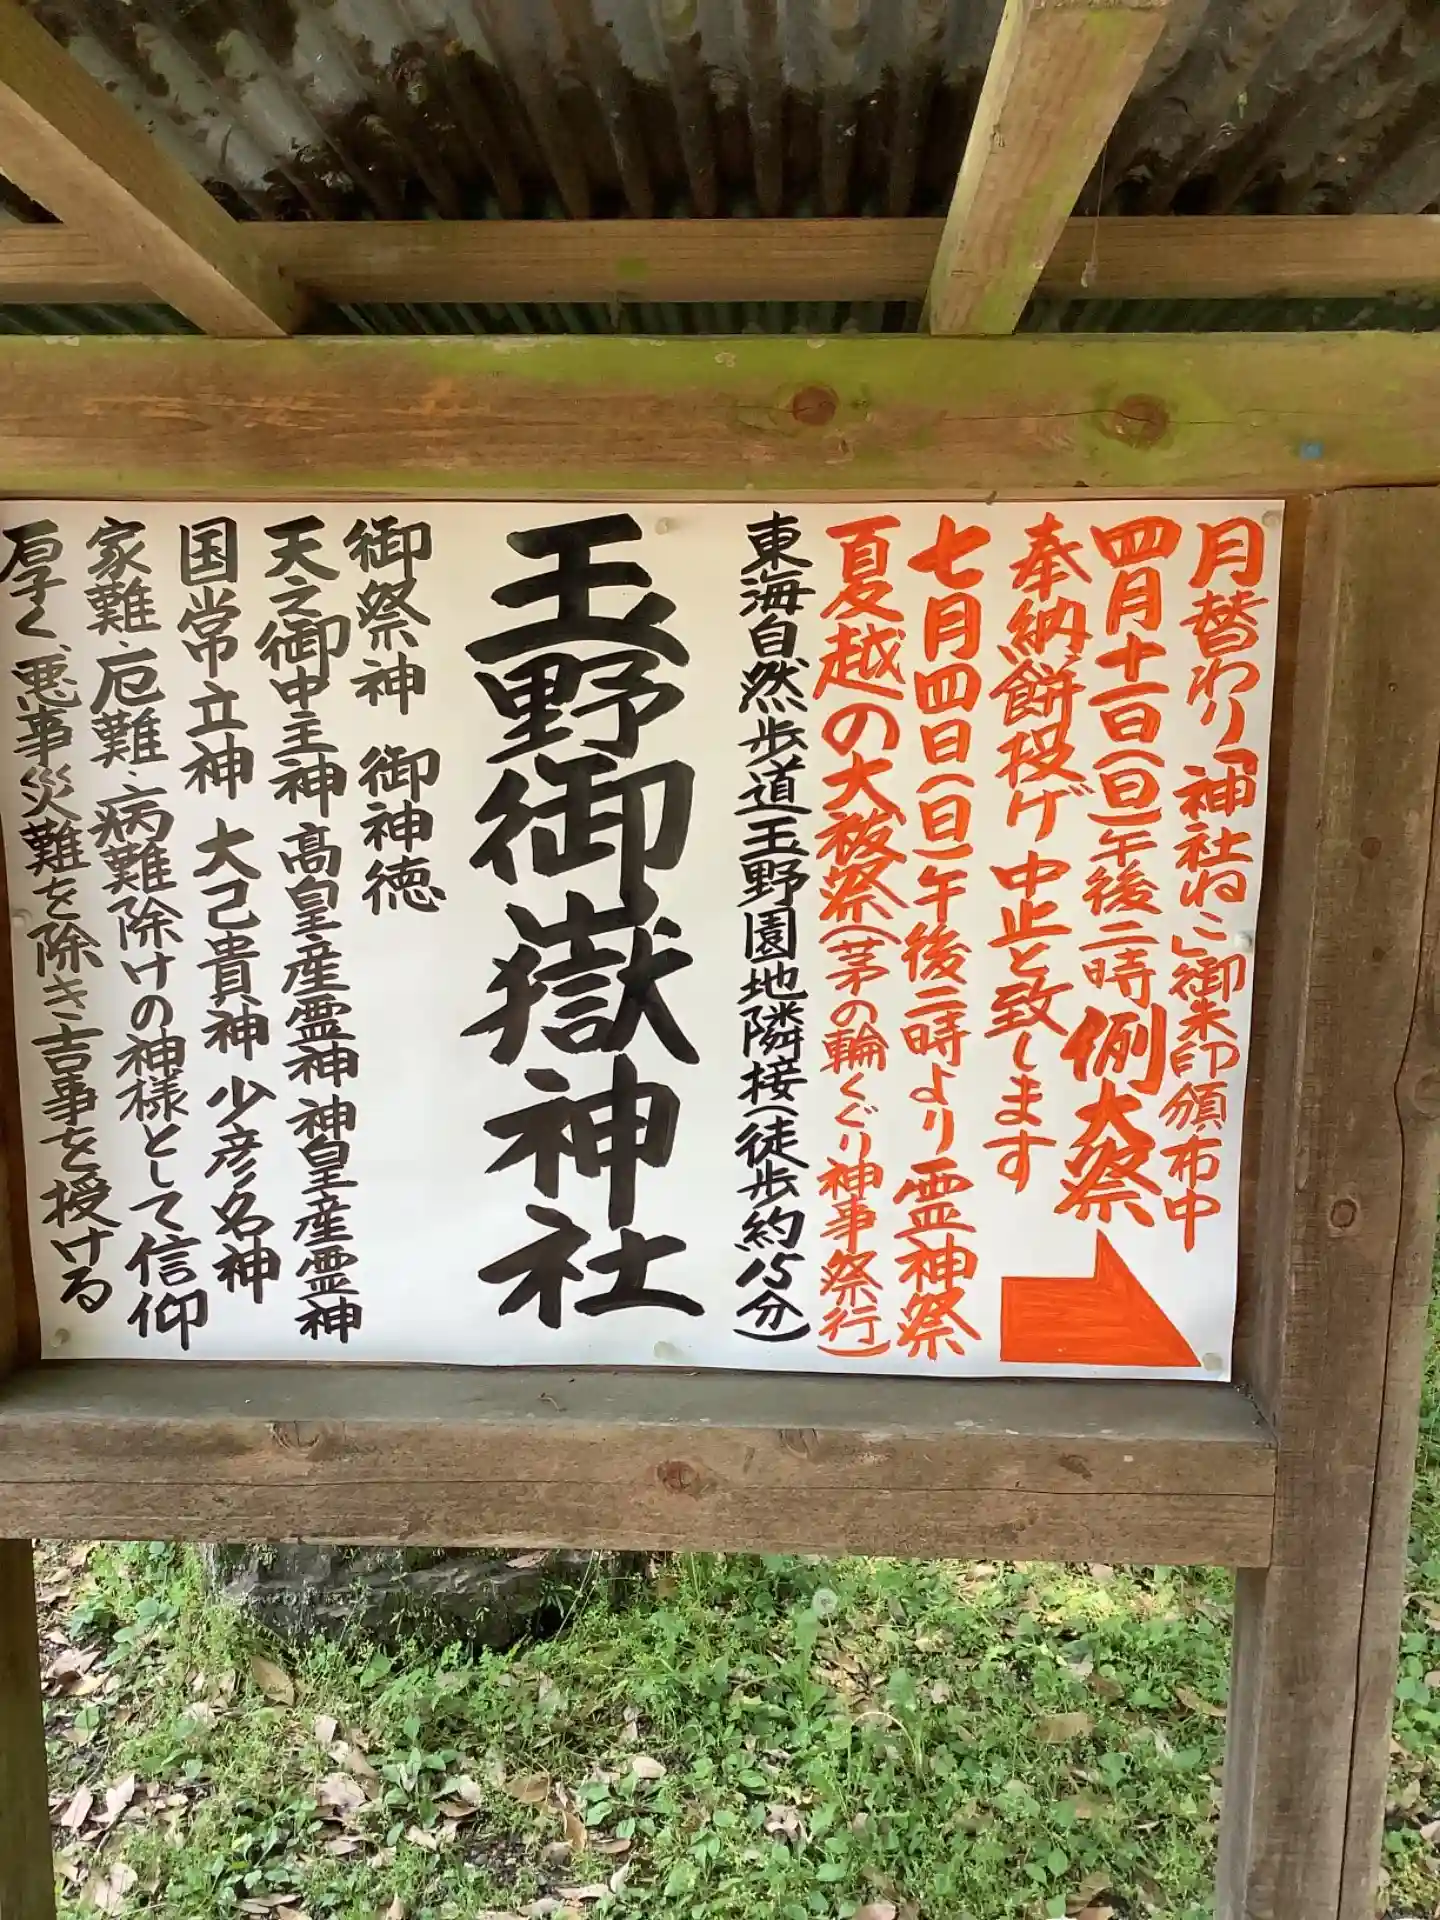 月替わり「神社ねこ」御朱印頒布中
四月十一日(日)午後二時 例大祭
奉納餅投げ中止と致します
七月四日(日)午後二時より霊神祭
夏越の大祓祭(茅の輪くぐり神事祭行)
東海自然歩道玉野園地隣接(徒歩約15分)
玉野御嶽神社
御祭神 御神徳
天之御中主神 高皇産霊神 神皇産霊神
国常立神 大己貴神 少彦名神
家難、厄難、病難除けの神様として信仰
厚く、悪事災難を除き吉事を授ける